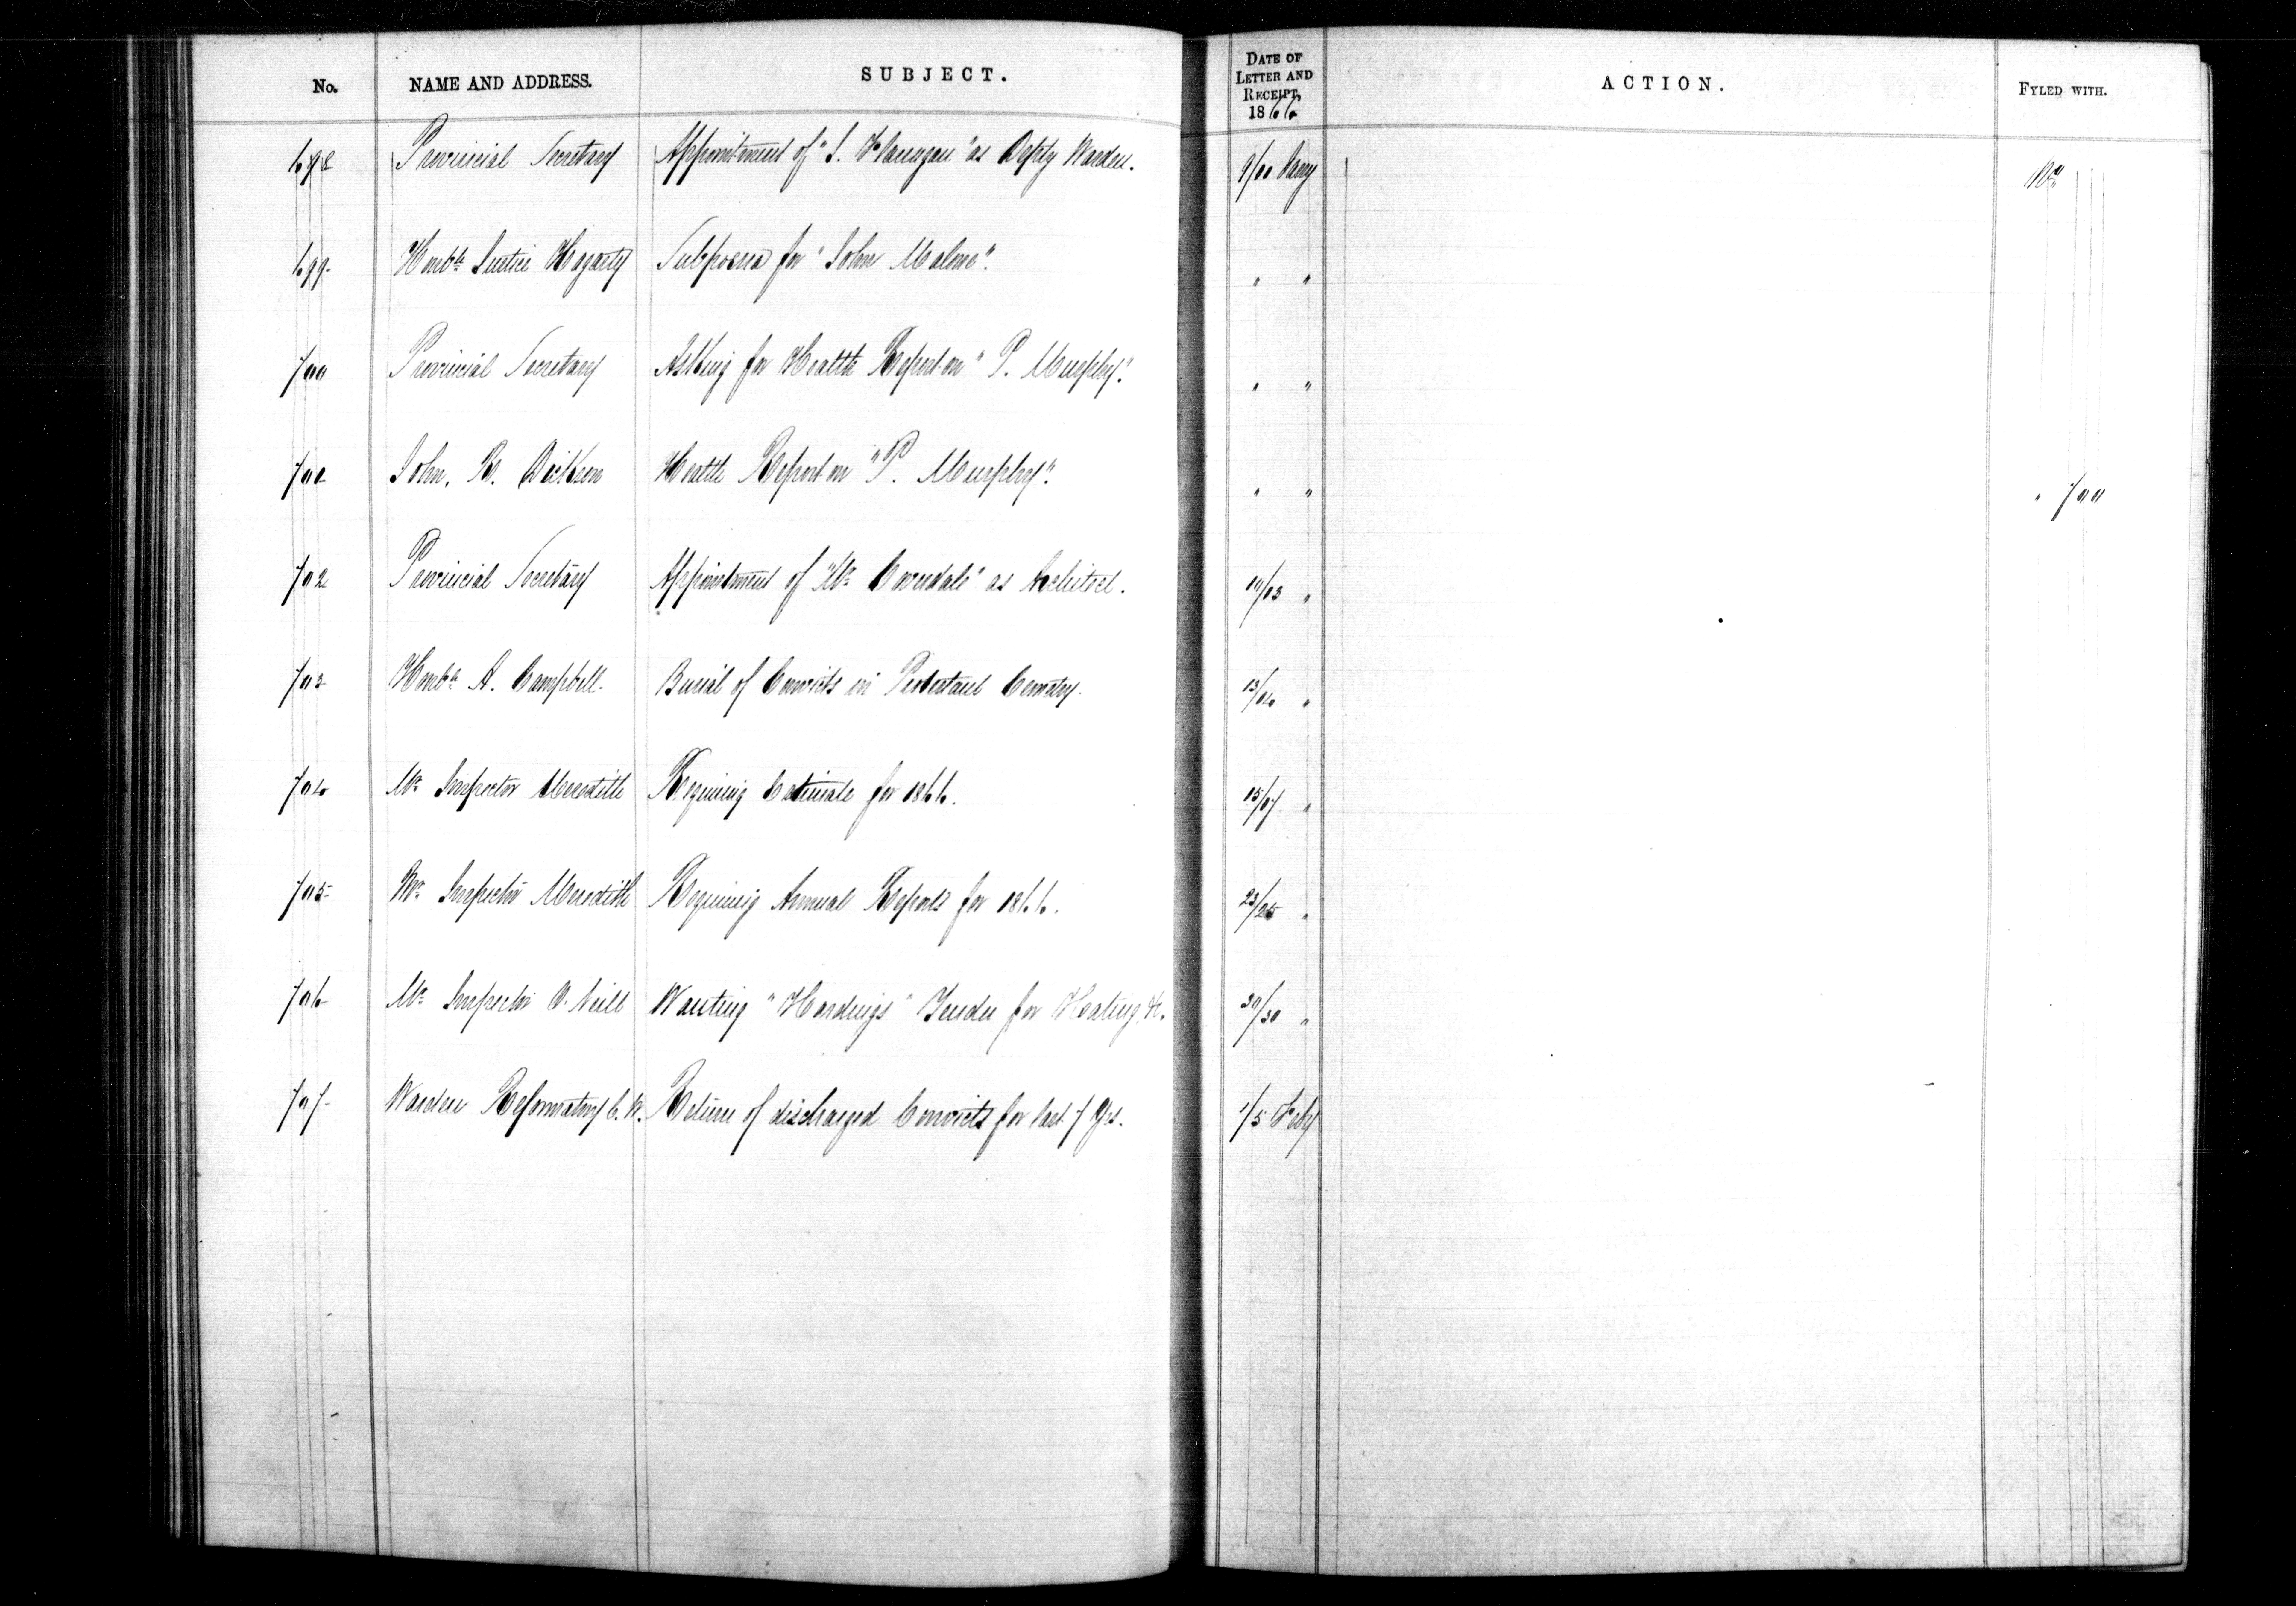 No. NAME AND ADDRESS. SUBJECT. DATE OF LETTER AND RECEIPT, 1866 ACTION. FYLED WITH.
698 Provincial Secretary Appointment of "J. Flanagan" as Depty Warden. 9/11 Jany No
699 Honble Justice Hagarty Subpoena for "John Malone". " "
700 Provincial Secretary Asking for Health Report on "P. Murphy". " "
701 John. R. Dickson Health Report on "P. Murphy". " " " 700
702 Provincial Secretary Appointment of "Mr Coverdale" as Architect. 11/13 "
703 Honble A. Campbell. Burial of Convicts in Protestant Cemetery. 13/ "
704 Mr Inspector Meredith Requiring Estimate for 1866. 15/17 "
705 Mr Inspector Meredith Requiring Annual Reports for 1866. 23/25 "
706 Mr Inspector O'Neill Wanting "Hardings" Tender for Heating, &c. 30/30 "
707 Warden Reformatory C.W. Return of discharged Convicts for last 7 Yrs. 1/5 Feby